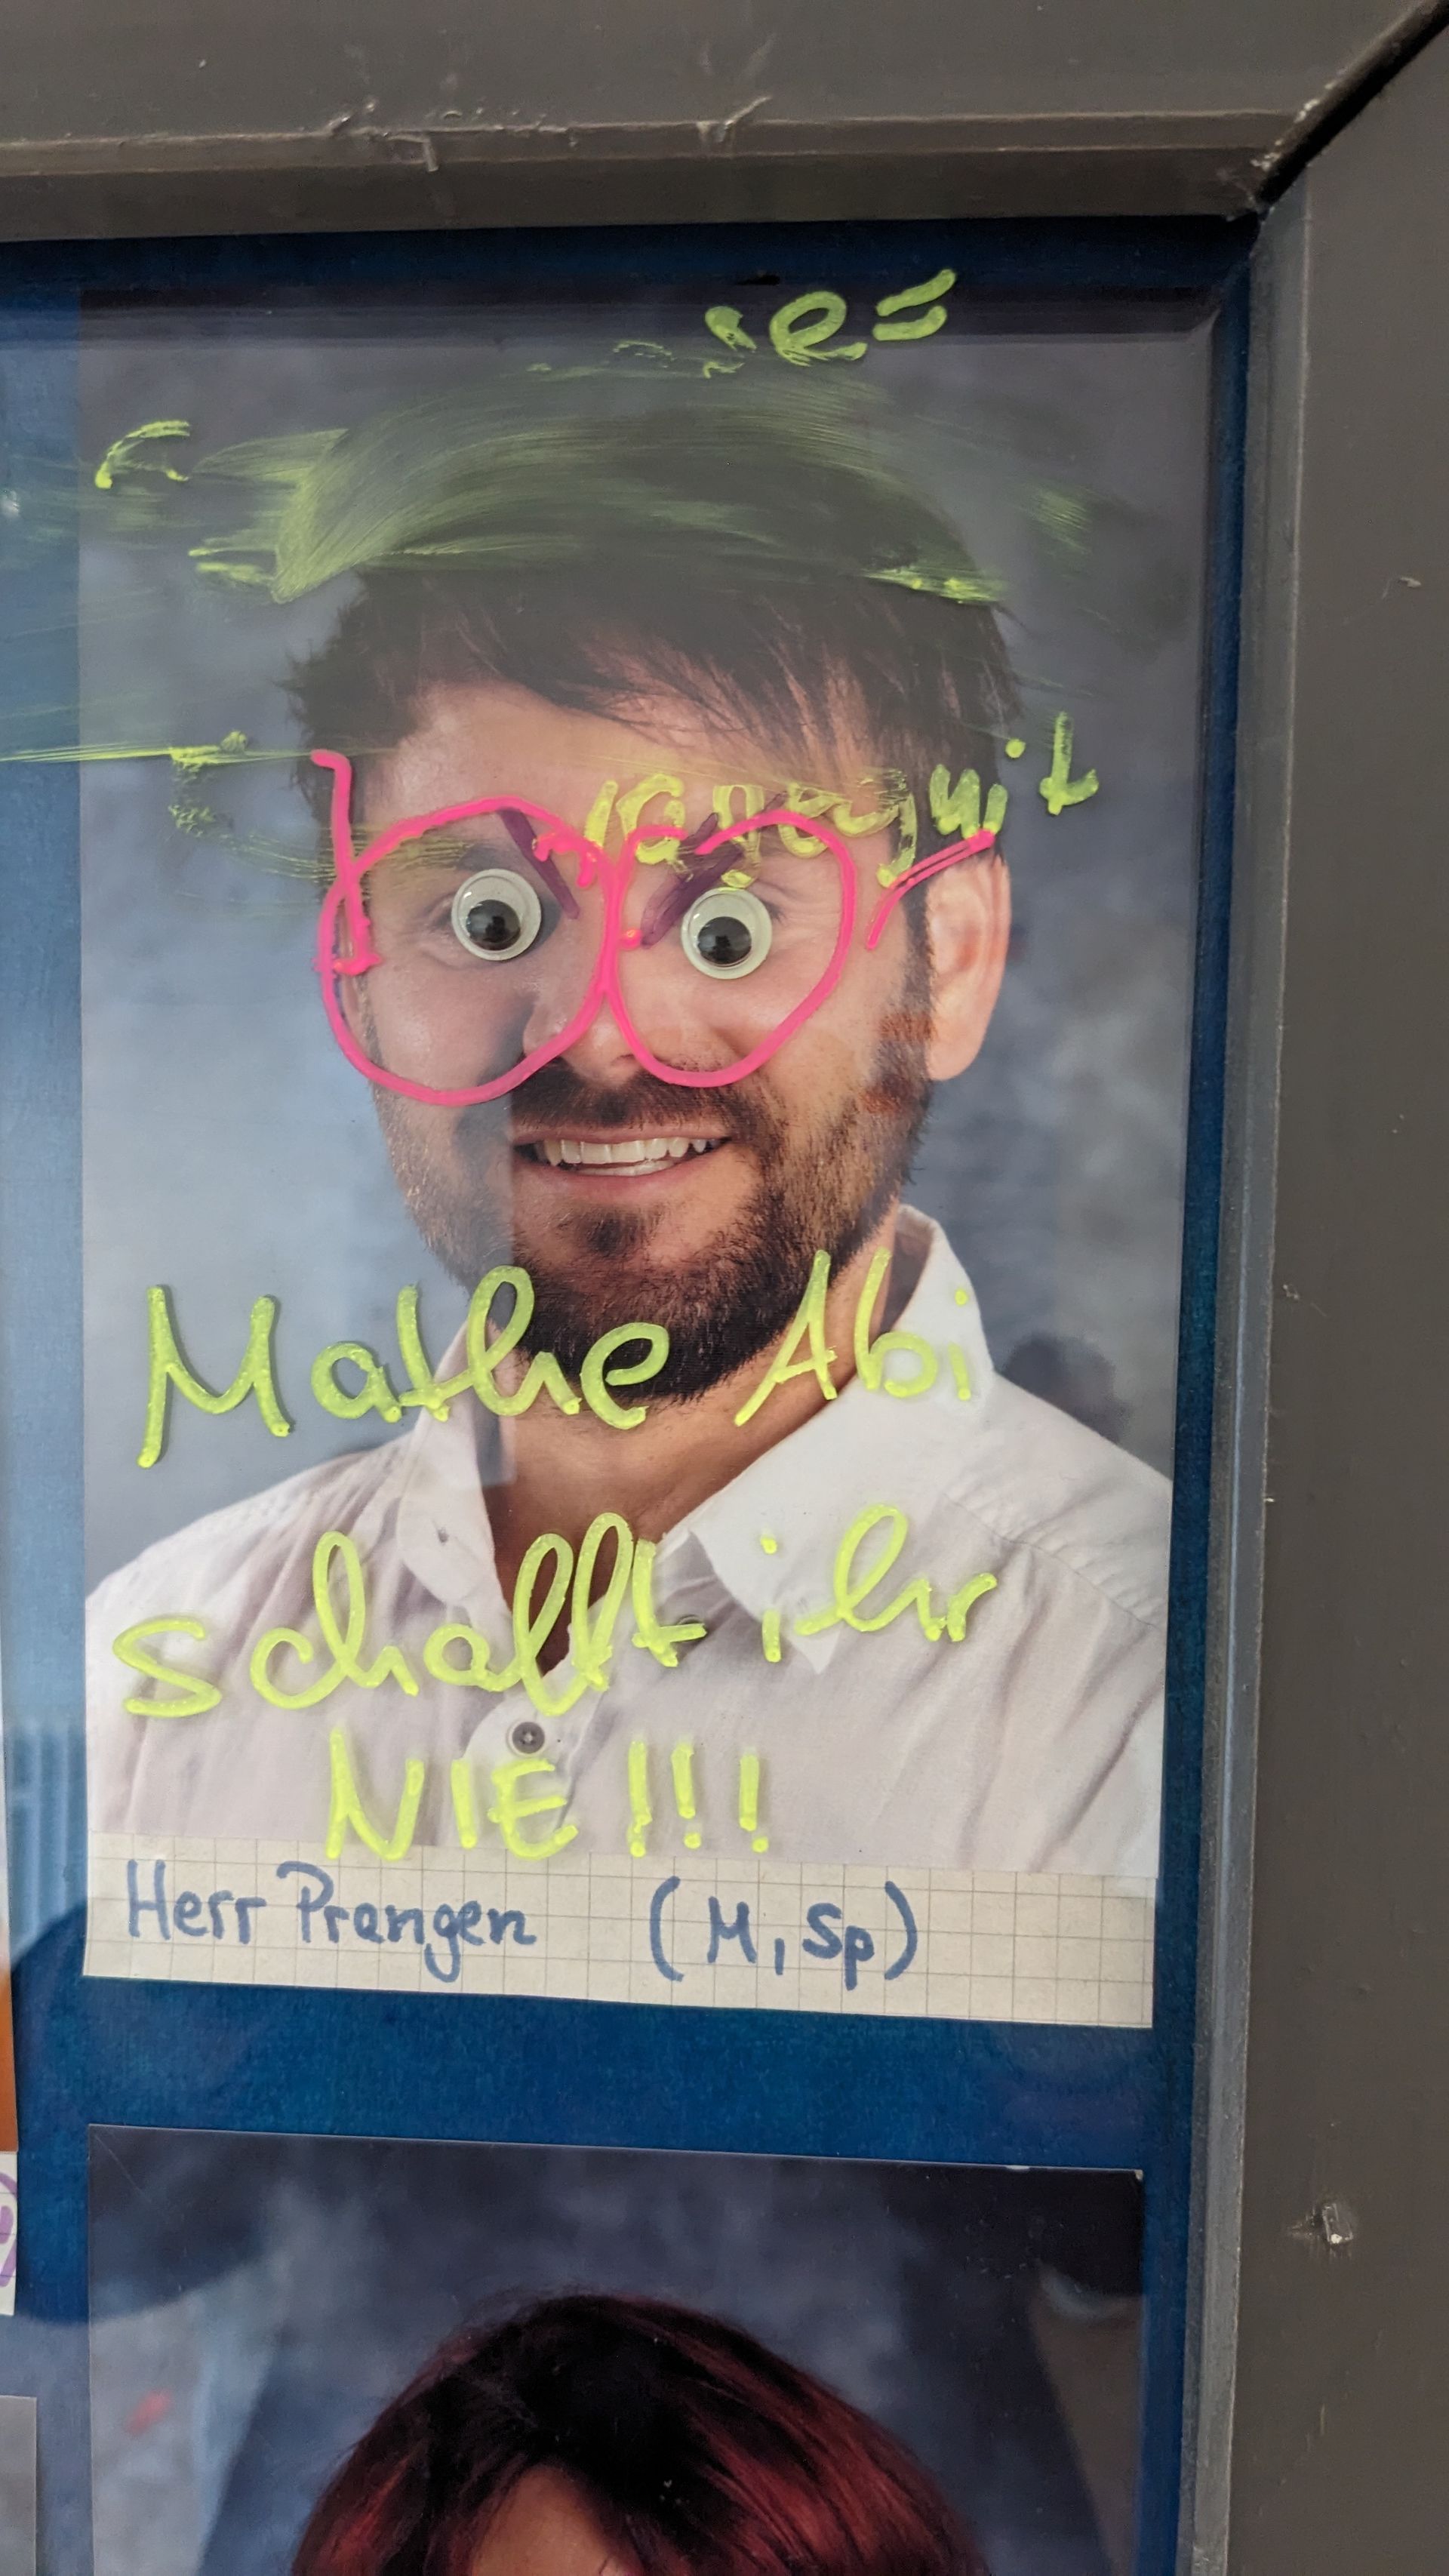 Mathe Abi
schafft ihr
NIE!!!
Herr Prangen (M, Sp)